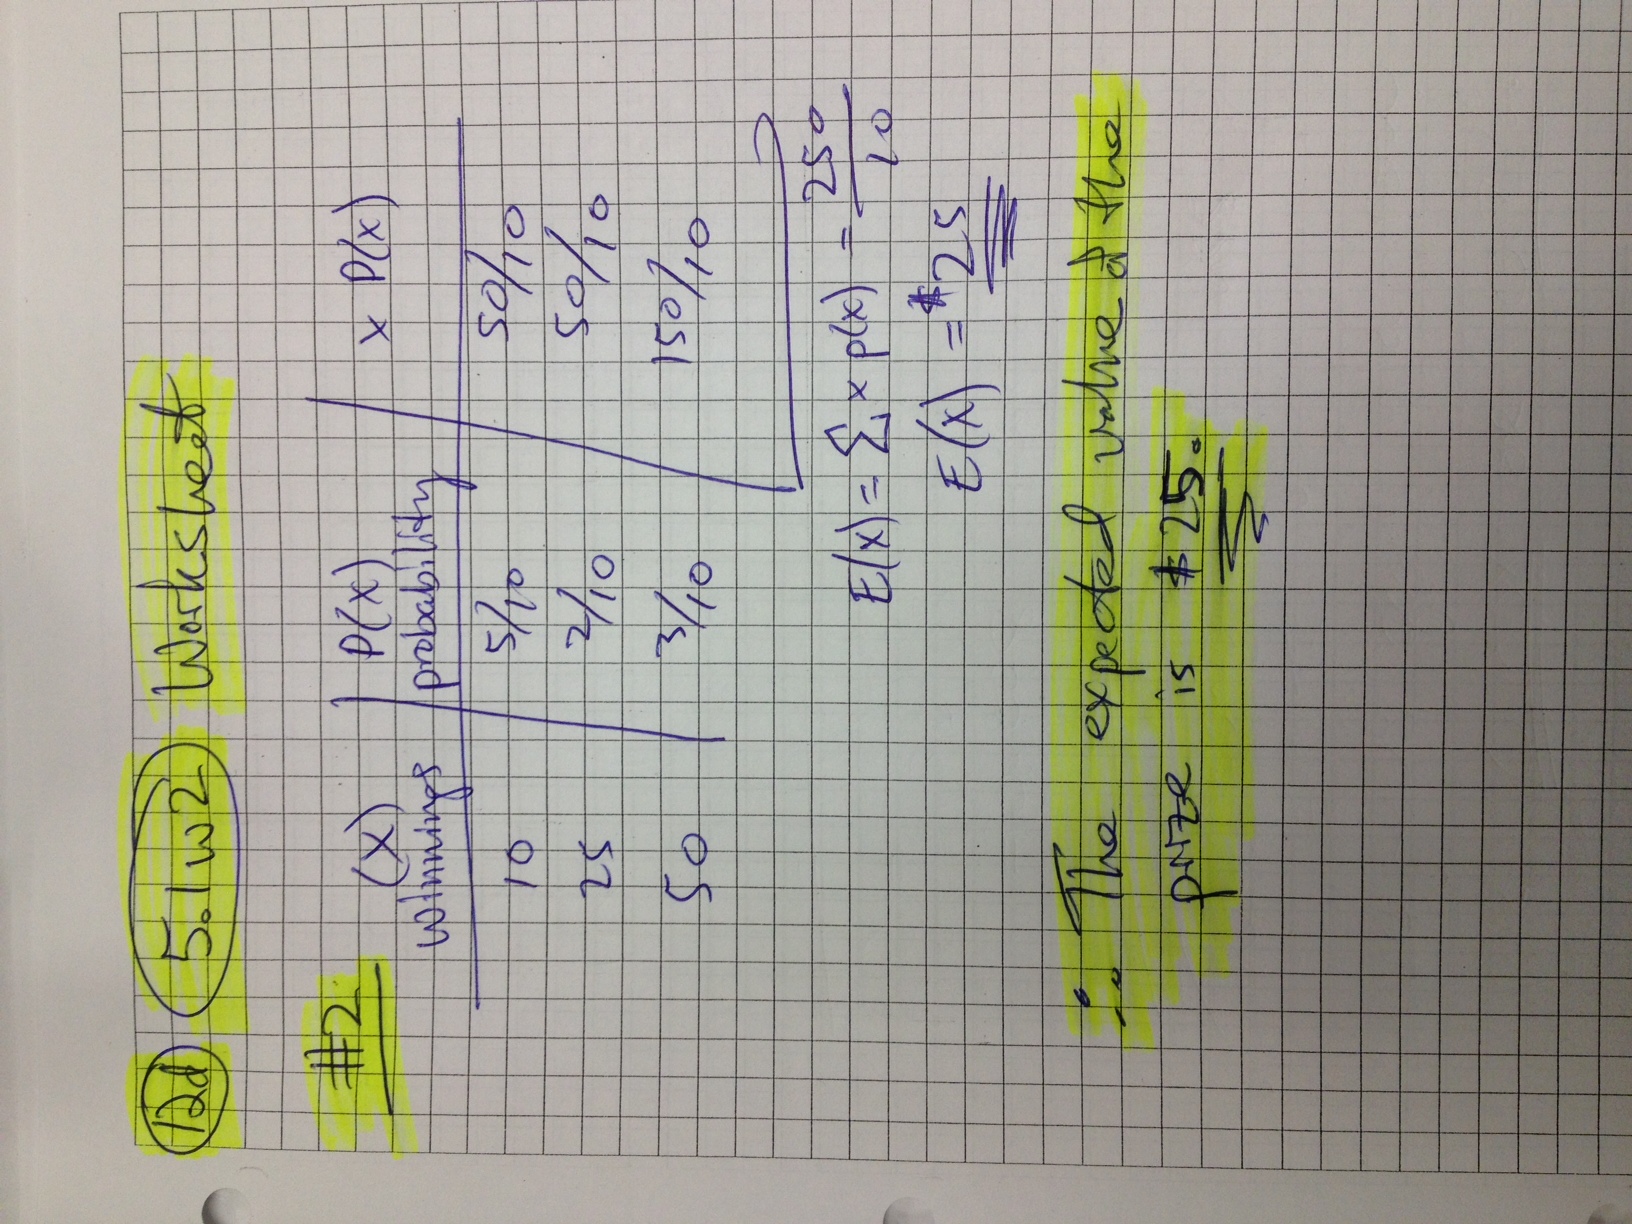 12d 5.1w2 Worksheet
#2
(x) winnings P(x) probability x P(x)
10 5/10 50/10
25 2/10 50/10
50 3/10 150/10
E(x) = Σ x p(x) = 250/10
E(x) = $25
∴ The expected value of the
prize is $25.